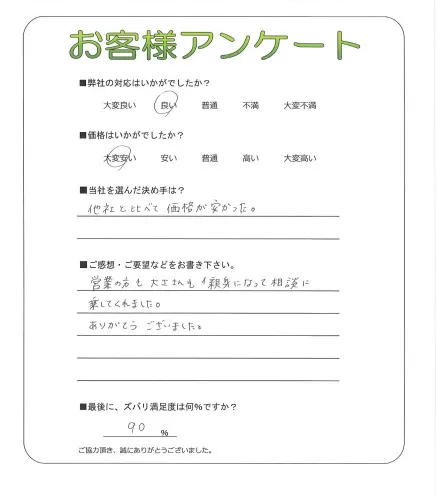 お客様アンケート
■弊社の対応はいかがでしたか？
大変良い 良い 普通 不満 大変不満
■価格はいかがでしたか？
大変安い 安い 普通 高い 大変高い
■当社を選んだ決め手は？
他社と比べて価格が安かった。
■ご感想・ご要望などをお書き下さい。
営業の方も大工さんも親身になって相談に
乗してくれました。
ありがとうございました。
■最後に、ズバリ満足度は何％ですか？
90 ％
ご協力頂き、誠にありがとうございました。